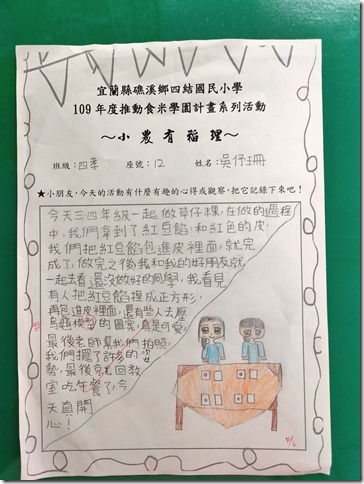 宜蘭縣礁溪鄉四結國民小學
109年度推動食米學園計畫系列活動
～小農有稻理～
班級：四孝 座號：12 姓名：吳伃珊
★小朋友，今天的活動有什麼有趣的心得或觀察，把它記錄下來吧！
今天三四年級一起做草仔粿，在做的過程
中，我們拿到了紅豆餡和紅色的皮，
我們把紅豆餡包進皮裡面，就完
成了，做完之後我和我的好朋友就
一起去看還沒做好的同學，我看見
有人把紅豆餡捏成正方形，
再包進皮裡面，還有些人去壓
烏龜模型的圖案，真是可愛，
最後老師幫我們拍照，
我們擺了許多的姿
勢，最後就回教
室吃午餐了，今
天真開
心！
7/6